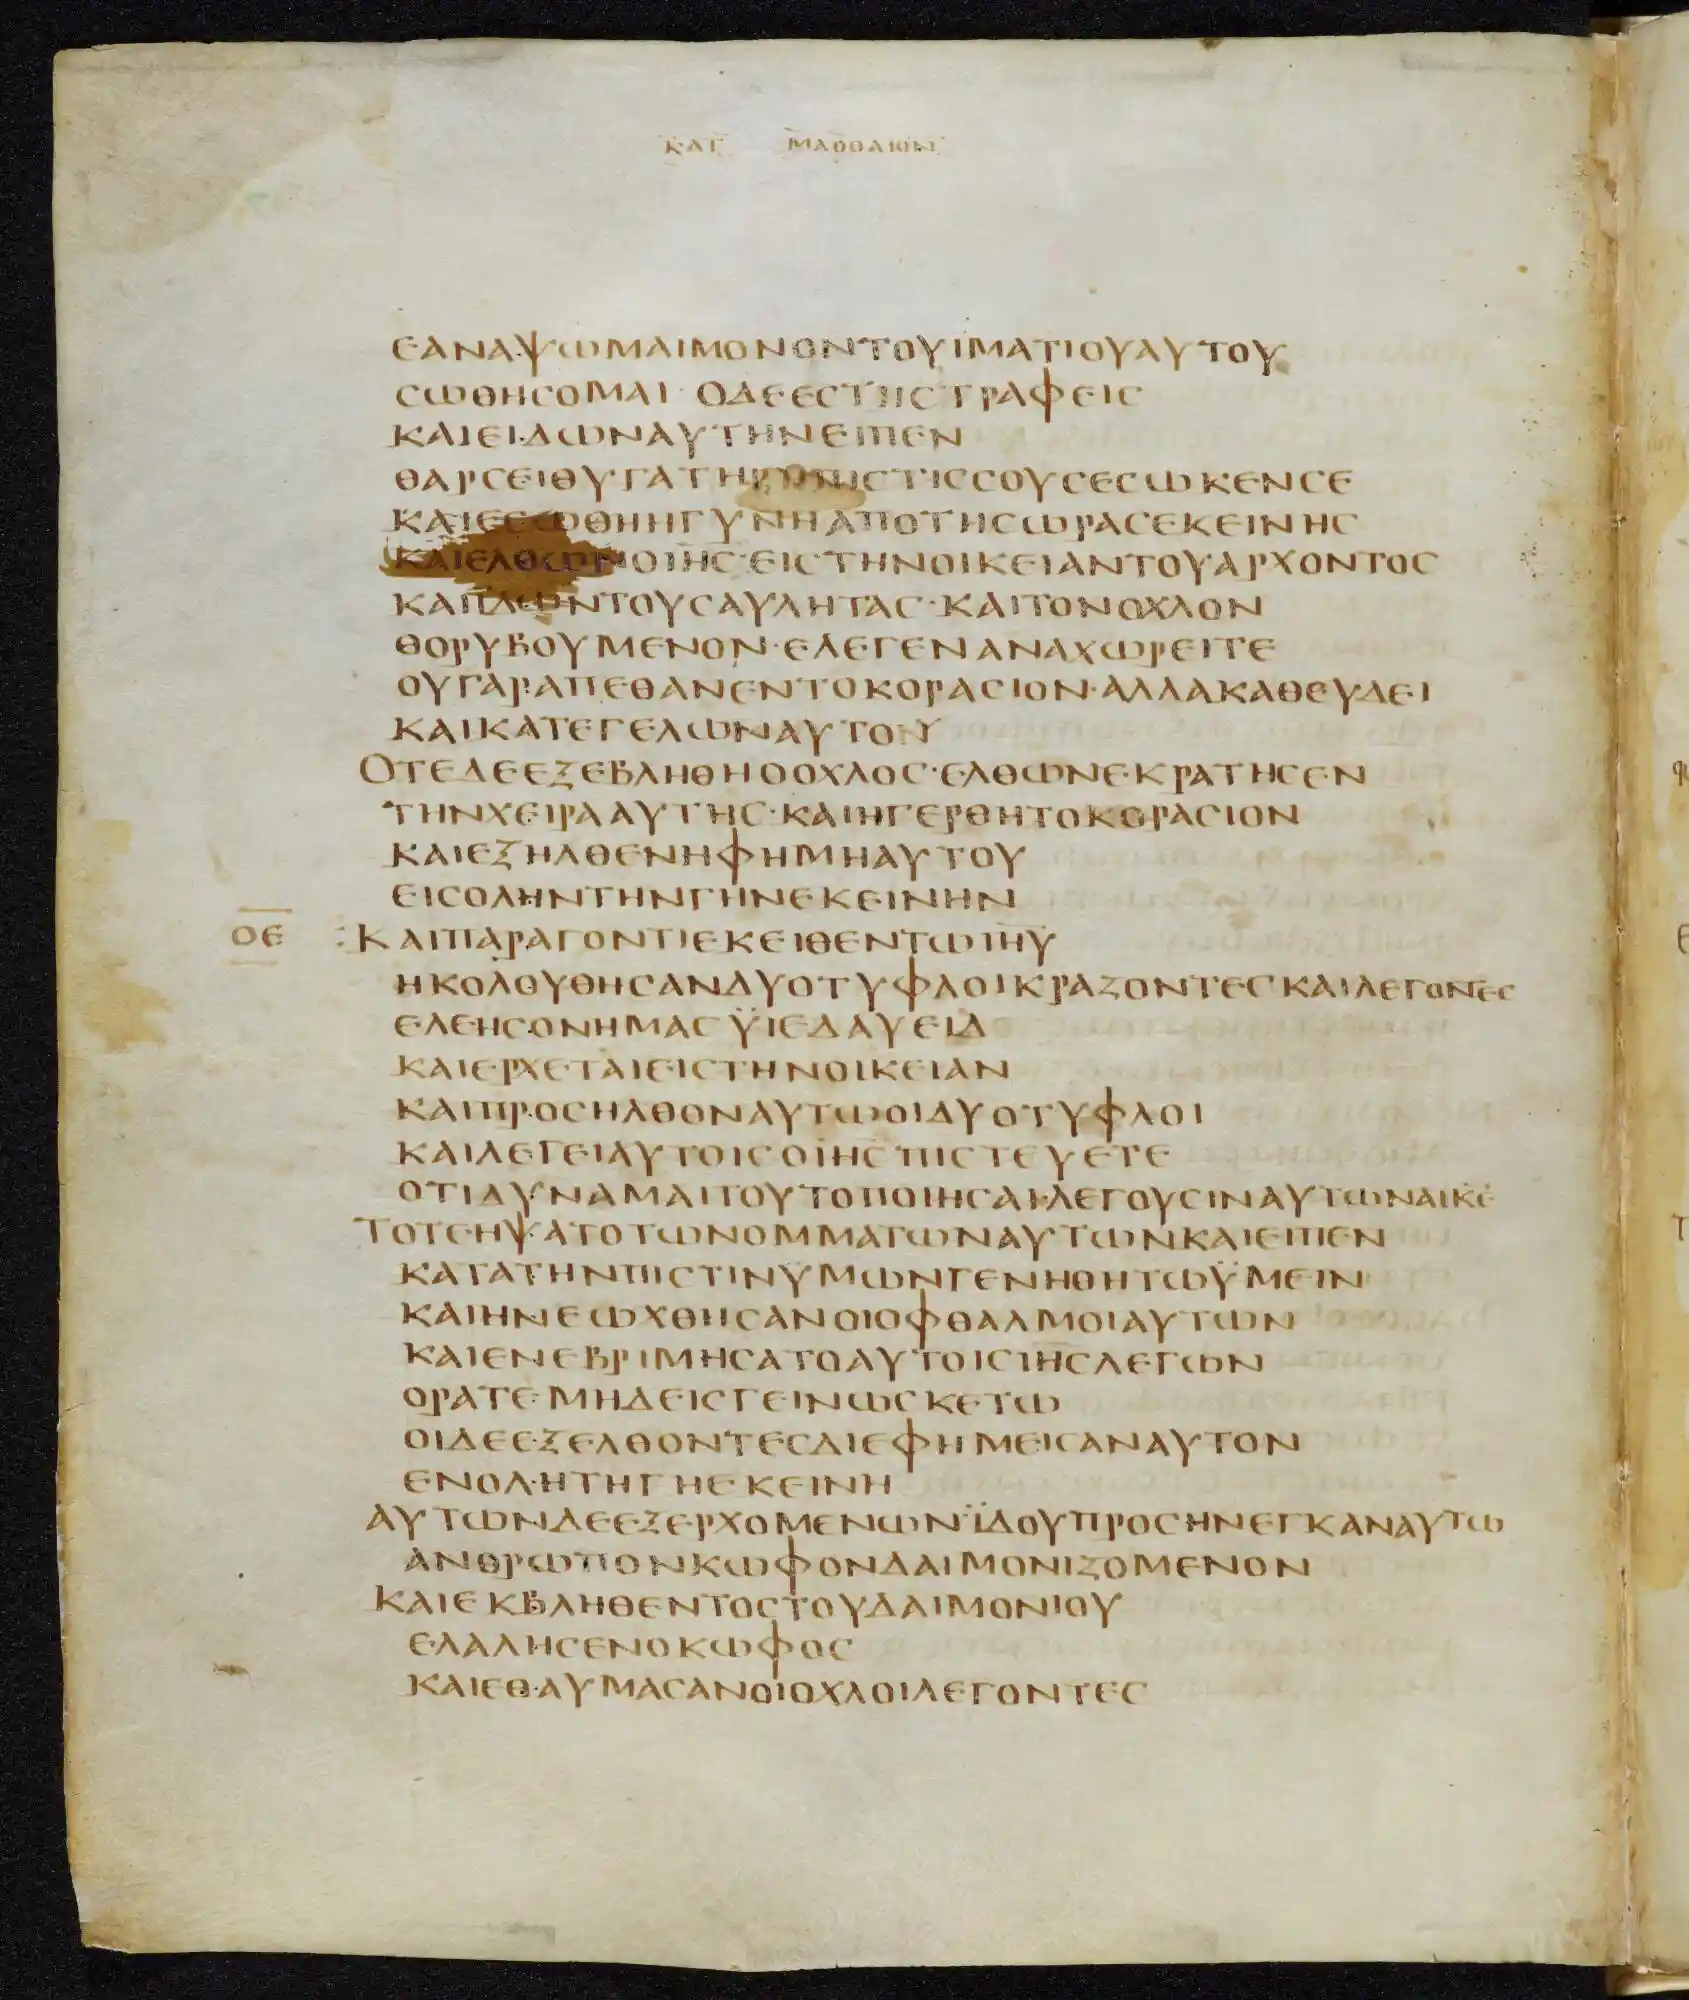 ΚΑΤ ΜΑΘΘΑΙΟΝ
ΕΑΝΑΨΩΜΑΙΜΟΝΟΝΤΟΥΙΜΑΤΙΟΥΑΥΤΟΥ
ϹΩΘΗϹΟΜΑΙ · ΟΔΕΕϹΤΗϹΤΡΑΦΕΙϹ
ΚΑΙΕΙΔΩΝΑΥΤΗΝΕΙΠΕΝ
ΘΑΡϹΕΙΘΥΓΑΤΗΡΗΠΙϹΤΙϹϹΟΥϹΕϹΩΚΕΝϹΕ
ΚΑΙΕϹΩΘΗΗΓΥΝΗΑΠΟΤΗϹΩΡΑϹΕΚΕΙΝΗϹ
ΚΑΙΕΛΘΩΝΟΙΗϹ·ΕΙϹΤΗΝΟΙΚΕΙΑΝΤΟΥΑΡΧΟΝΤΟϹ
ΚΑΙΙΔΩΝΤΟΥϹΑΥΛΗΤΑϹ·ΚΑΙΤΟΝΟΧΛΟΝ
ΘΟΡΥΒΟΥΜΕΝΟΝ·ΕΛΕΓΕΝΑΝΑΧΩΡΕΙΤΕ
ΟΥΓΑΡΑΠΕΘΑΝΕΝΤΟΚΟΡΑϹΙΟΝ·ΑΛΛΑΚΑΘΕΥΔΕΙ
ΚΑΙΚΑΤΕΓΕΛΩΝΑΥΤΟΥ
ΟΤΕΔΕΕΞΕΒΛΗΘΗΟΟΧΛΟϹ·ΕΛΘΩΝΕΚΡΑΤΗϹΕΝ
ΤΗΝΧΕΙΡΑΑΥΤΗϹ·ΚΑΙΗΓΕΡΘΗΤΟΚΟΡΑϹΙΟΝ
ΚΑΙΕΞΗΛΘΕΝΗΦΗΜΗΑΥΤΟΥ
ΕΙϹΟΛΗΝΤΗΝΓΗΝΕΚΕΙΝΗΝ
ΟΕ :ΚΑΙΠΑΡΑΓΟΝΤΙΕΚΕΙΘΕΝΤΩΙΗΥ
ΗΚΟΛΟΥΘΗϹΑΝΔΥΟΤΥΦΛΟΙΚΡΑΖΟΝΤΕϹΚΑΙΛΕΓΟΝΤΕϹ
ΕΛΕΗϹΟΝΗΜΑϹΫΙΕΔΑΥΕΙΔ
ΚΑΙΕΡΧΕΤΑΙΕΙϹΤΗΝΟΙΚΕΙΑΝ
ΚΑΙΠΡΟϹΗΛΘΟΝΑΥΤΩΟΙΔΥΟΤΥΦΛΟΙ
ΚΑΙΛΕΓΕΙΑΥΤΟΙϹΟΙΗϹΠΙϹΤΕΥΕΤΕ
ΟΤΙΔΥΝΑΜΑΙΤΟΥΤΟΠΟΙΗϹΑΙ·ΛΕΓΟΥϹΙΝΑΥΤΩΝΑΙΚΕ
ΤΟΤΕΗΨΑΤΟΤΩΝΟΜΜΑΤΩΝΑΥΤΩΝΚΑΙΕΙΠΕΝ
ΚΑΤΑΤΗΝΠΙϹΤΙΝΫΜΩΝΓΕΝΗΘΗΤΩΫΜΕΙΝ
ΚΑΙΗΝΕΩΧΘΗϹΑΝΟΙΟΦΘΑΛΜΟΙΑΥΤΩΝ
ΚΑΙΕΝΕΒΡΙΜΗϹΑΤΟΑΥΤΟΙϹΙΗϹΛΕΓΩΝ
ΟΡΑΤΕΜΗΔΕΙϹΓΕΙΝΩϹΚΕΤΩ
ΟΙΔΕΕΞΕΛΘΟΝΤΕϹΔΙΕΦΗΜΕΙϹΑΝΑΥΤΟΝ
ΕΝΟΛΗΤΗΓΗΕΚΕΙΝΗ
ΑΥΤΩΝΔΕΕΞΕΡΧΟΜΕΝΩΝΪΔΟΥΠΡΟϹΗΝΕΓΚΑΝΑΥΤΩ
ΑΝΘΡΩΠΟΝΚΩΦΟΝΔΑΙΜΟΝΙΖΟΜΕΝΟΝ
ΚΑΙΕΚΒΛΗΘΕΝΤΟϹΤΟΥΔΑΙΜΟΝΙΟΥ
ΕΛΑΛΗϹΕΝΟΚΩΦΟϹ
ΚΑΙΕΘΑΥΜΑϹΑΝΟΙΟΧΛΟΙΛΕΓΟΝΤΕϹ